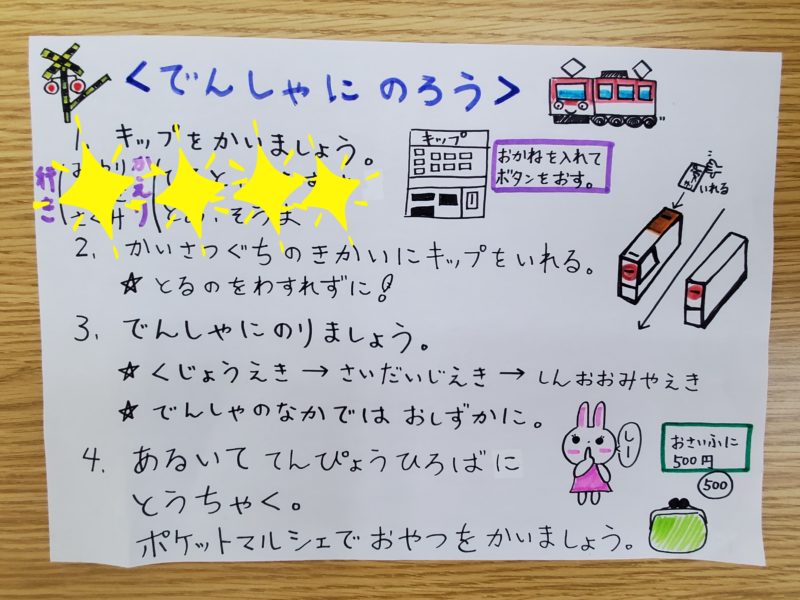 <でんしゃに のろう>
1. キップをかいましょう。
キップ
おかねを入れて
ボタンをおす。
いれる
行き
かえり
2. かいさつぐちのきかいにキップをいれる。
☆ とるのをわすれずに!
3. でんしゃにのりましょう。
☆ くじょうえき → さいだいじえき → しんおおみやえき
☆ でんしゃのなかでは おしずかに。
しー
おさいふに
500円
500
4. あるいて てんぴょうひろばに
とうちゃく。
ポケットマルシェでおやつをかいましょう。